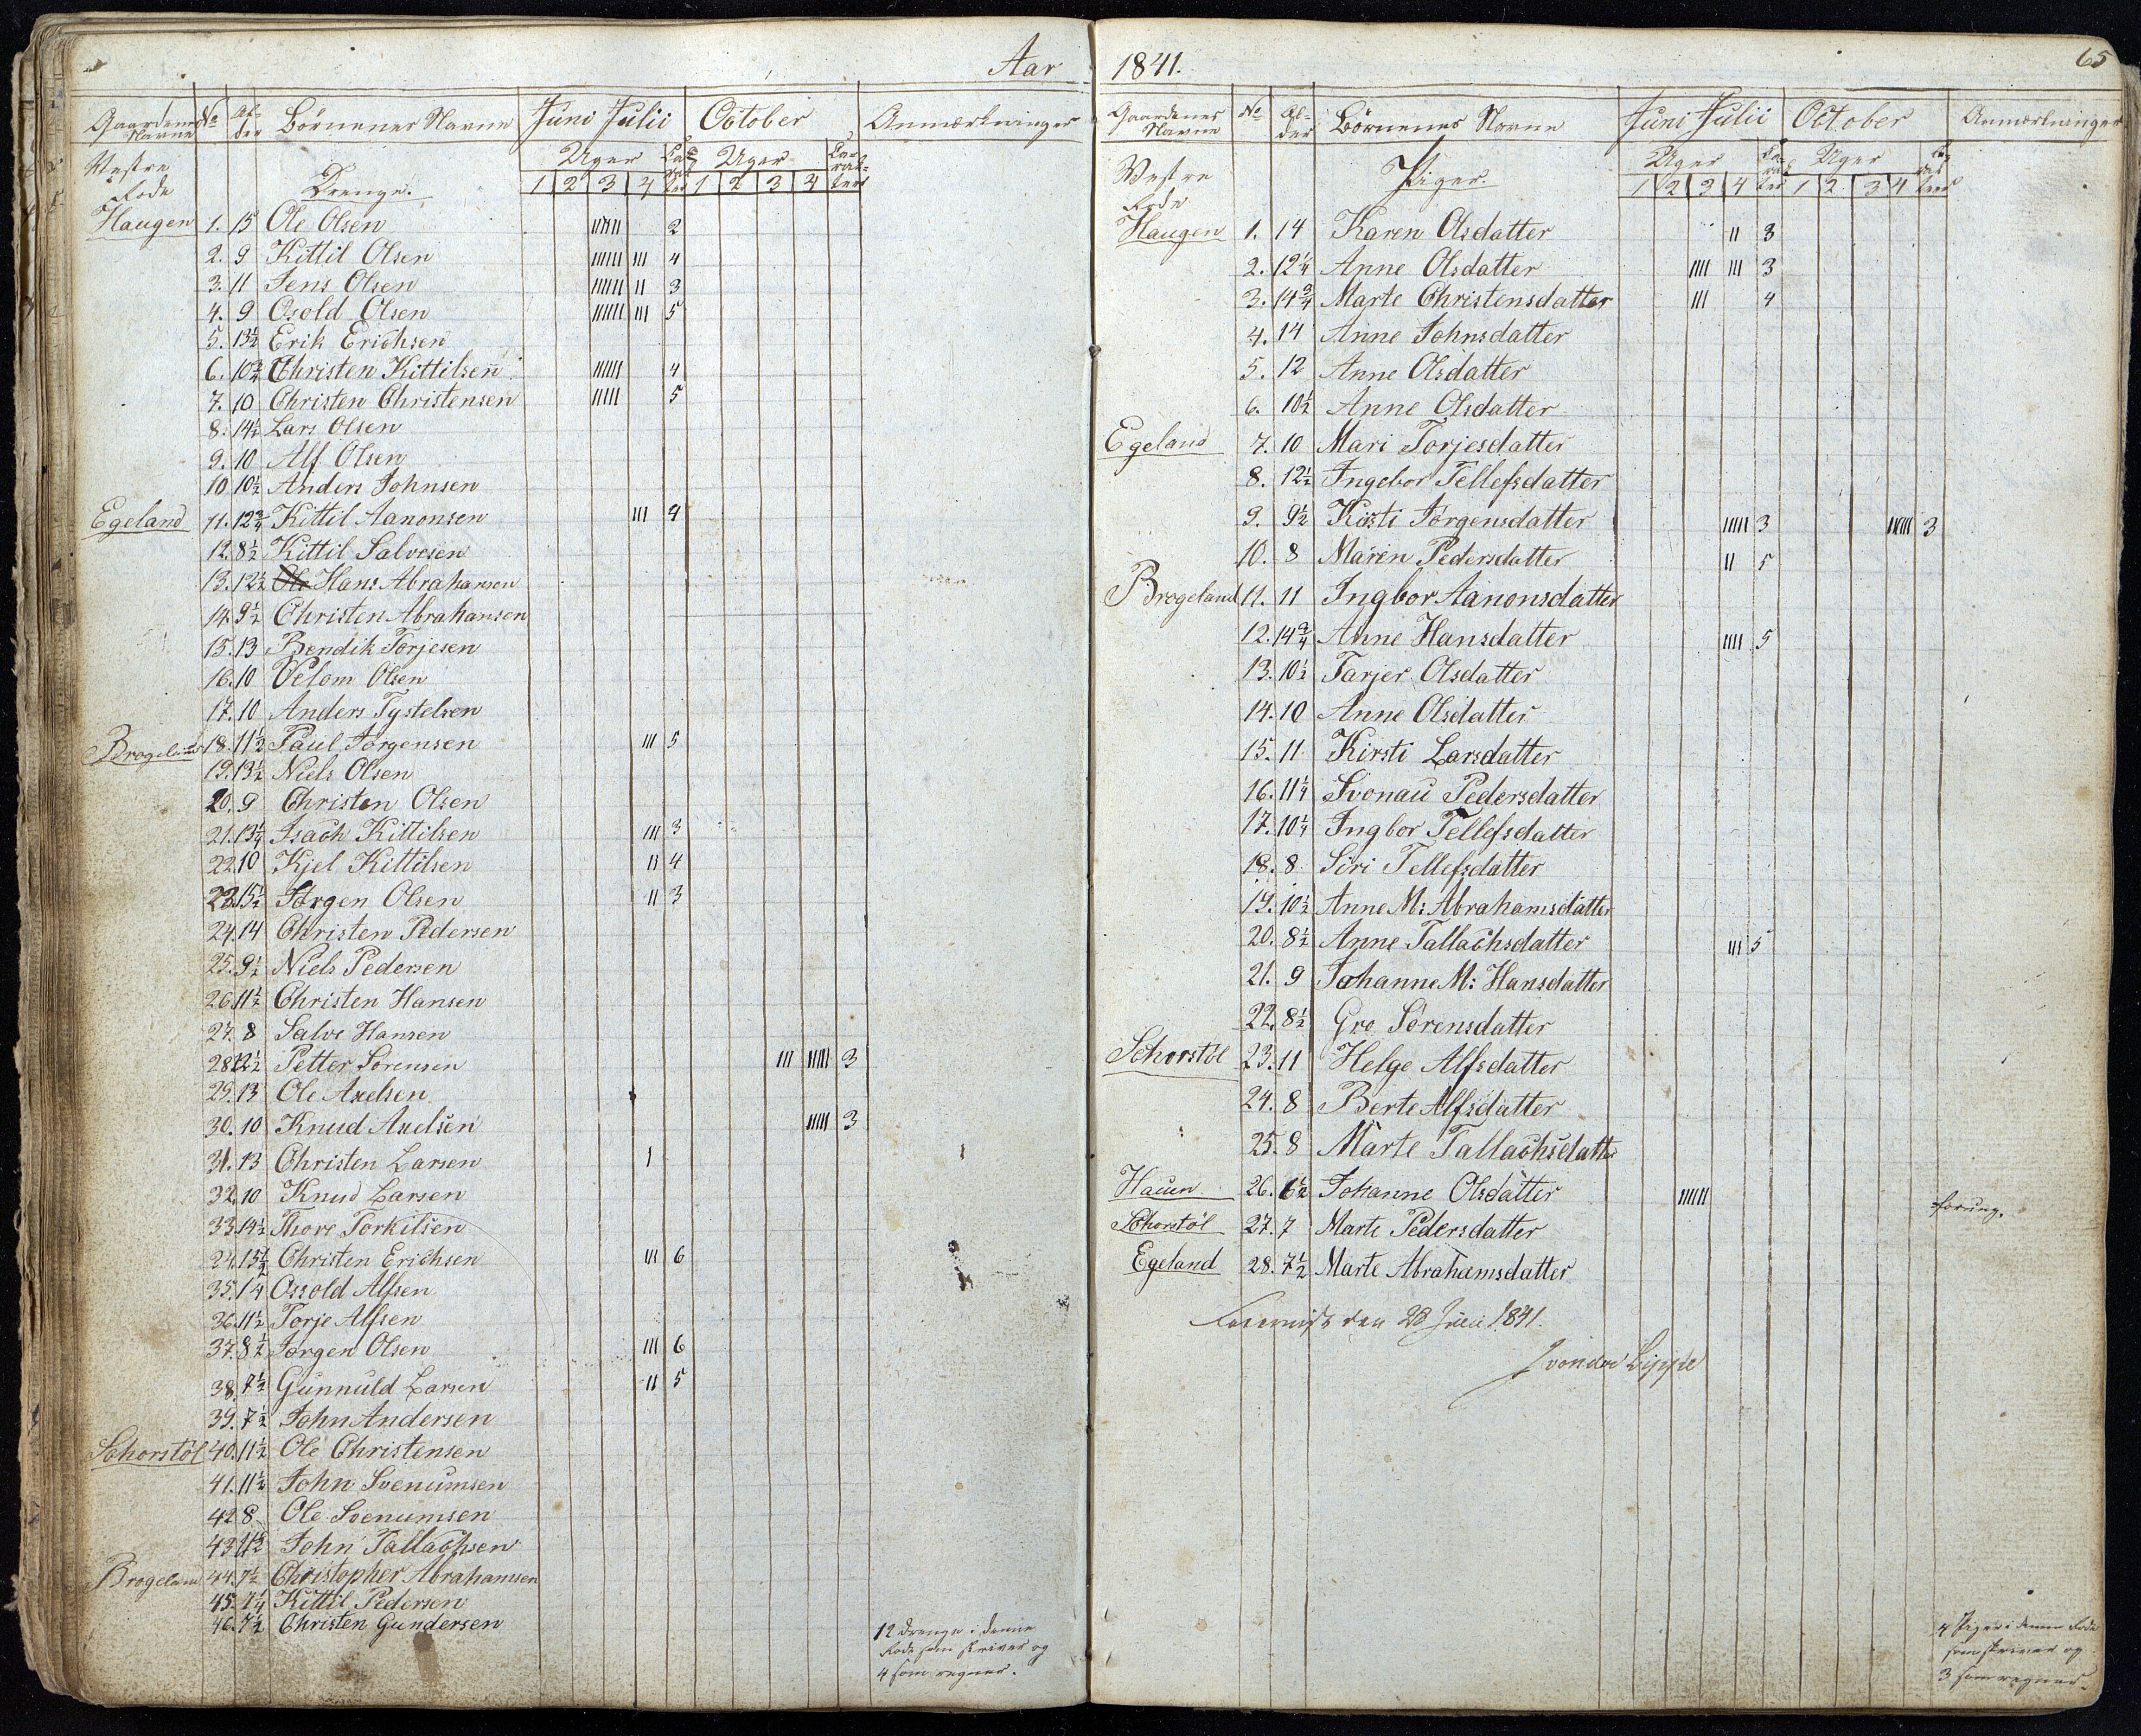 Aar
Gaardenes Navne No Alder Börnenes Navne Juni Julii October Anmærkninger
Uger Caracter Uger Caracter
1 2 3 4 1 2 3 4
Vestre Rode
Drenge.
Haugen 1. 15 Ole Olsen IIIII 2
2. 9 Kittil Olsen IIIIII III 4
3. 11 Jens Olsen IIIIII II 3
4. 9 Osold Olsen IIIIII III 5
5. 13½ Erik Erichsen
6. 10¾ Christen Kittilsen IIIII 4
7. 10 Christen Christensen IIIII 5
8. 14½ Lars Olsen
9. 10 Alf Olsen
10 10½ Anders Johnsen
Egeland 11. 12¾ Kittil Aanonsen III 4
12. 8½ Kittil Salvesen
13. 12½ Ole Hans Abrahamsen
14. 9½ Christen Abrahansen
15. 13 Bendik Torjesen
16. 10 Velom Olsen
17. 10 Anders Tystelsen
Brogeland 18. 11½ Paul Jörgensen III 5
19. 13½ Niels Olsen
20. 9 Christen Olsen
21. 13¼ Isach Kittilsen III 3
22. 10 Kjel Kittilsen II 4
23. 15½ Jørgen Olsen II 3
24. 14 Christen Pedersen
25. 9½ Niels Pedersen
26. 11½ Christen Hansen
27. 8 Salve Hansen
28. 12½ Petter Sörensen III IIIII 3
29. 13 Ole Axelsen
30. 10 Knud Axelsen IIIII 3
31. 13 Christen Larsen I
32. 10 Knud Larsen
33. 14½ Thore Torkilsen
24. 15½ Christen Erichsen III 6
35. 14 Ossold Alfsen
36. 11½ Torje Alfsen
37. 8½ Jørgen Olsen III 6
38. 7½ Gunnuld Larsen II 5
39. 7½ John Andersen
Schorstöl 40. 11½ Ole Christensen
41. 11½ John Svenumsen
42 8. Ole Svenumsen
43 11½ John Tallachsen
Brogeland 44. 7½ Christopher Abrahamsen
45. 7¼ Kittil Pedersen
46. 7½ Christen Gundersen
12 Drenge i denne
Rode som skriver og
4 som regner.
1841. 65
Gaardenes Navne No Alder Börnenes Navne Juni Julii October Anmærkninger
Uger Caracter Uger Caracter
1 2 3 4 1 2 3 4
Vestre Rode
Piger.
Haugen 1. 14 Karen Olsdatter II 3
2. 12¼ Anne Olsdatter IIII III 3
3. 14¾ Marte Christensdatter III 4
4. 14 Anne Johnsdatter
5. 12 Anne Olsdatter
6. 10½ Anne Olsdatter
Egeland 7. 10 Mari Torjesdatter
8. 12½ Ingebor Tellefsdatter
9. 9½ Kirsti Jörgensdatter IIIII 3 IIIII 3
10. 8 Maren Pedersdatter II 5
Brogeland 11. 11 Ingbor Aanonsdatter
12. 14¾ Anne Hansdatter IIII 5
13. 10½ Tarjer Olsdatter
14. 10 Anne Olsdatter
15. 11 Kirsti Larsdatter
16. 11¼ Svonau Pedersdatter
17. 10¼ Ingbor Tellefsdatter
18. 8 Siri Tellefsdatter
19. 10½ Anne M: Abrahamsdatter
20. 8½ Anne Tallachsdatter III 5
21. 9 Johanne M: Hansdatter
22. 8½ Gro Sörensdatter
Schorstöl 23. 11 Helge Alfsdatter
24. 8 Berte Alfsdatter
25. 8 Marte Tallachsdatter
Hauen 26. 6½ Johanne Olsdatter IIIII forung.
Schorstöl 27. 7 Marte Pedersdatter
Egeland 28. 7½ Marte Abrahamsdatter
den 28 Juli 1841.
J von der Lippe
4 Piger i denne Rode
som skriver og
3 som regner.